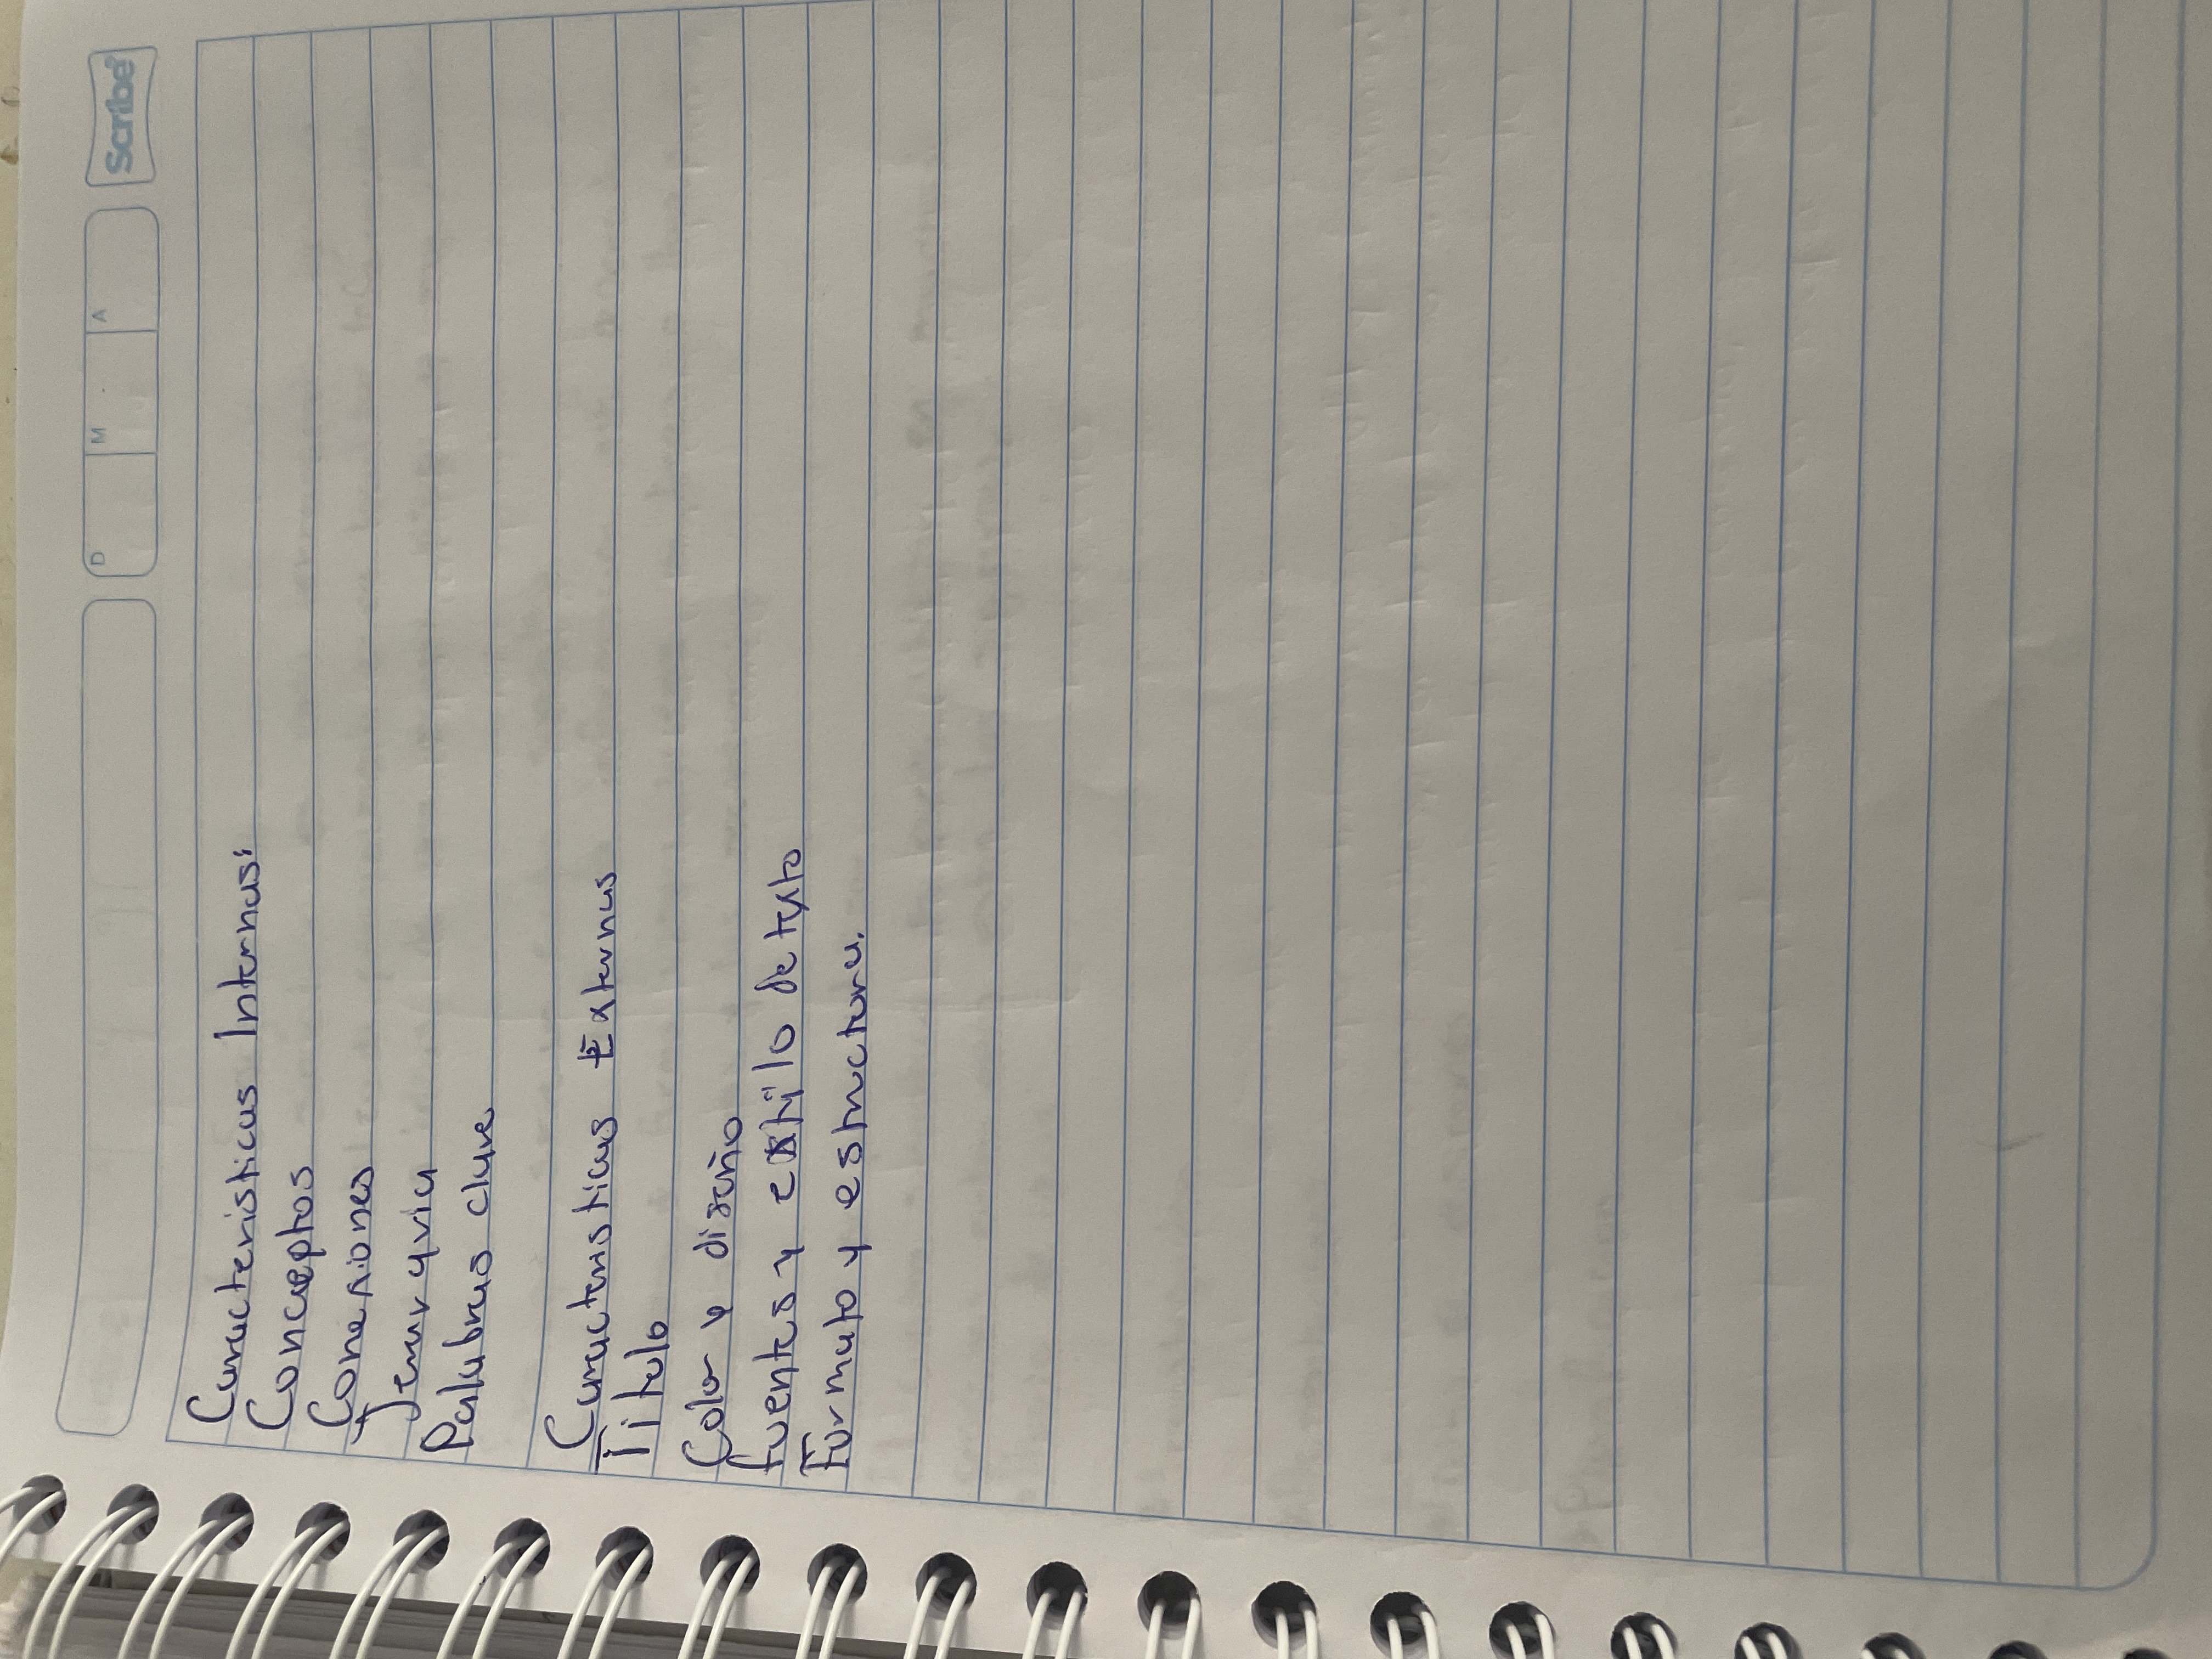 Scribe
D M A
Caracteristicas Internas:
Conceptos
Conexiones
Jerarquia
Palabras clave
Caracteristicas Externas
Titulo
Color y diseño
fuentes y estilo de texto
Formato y estructura.